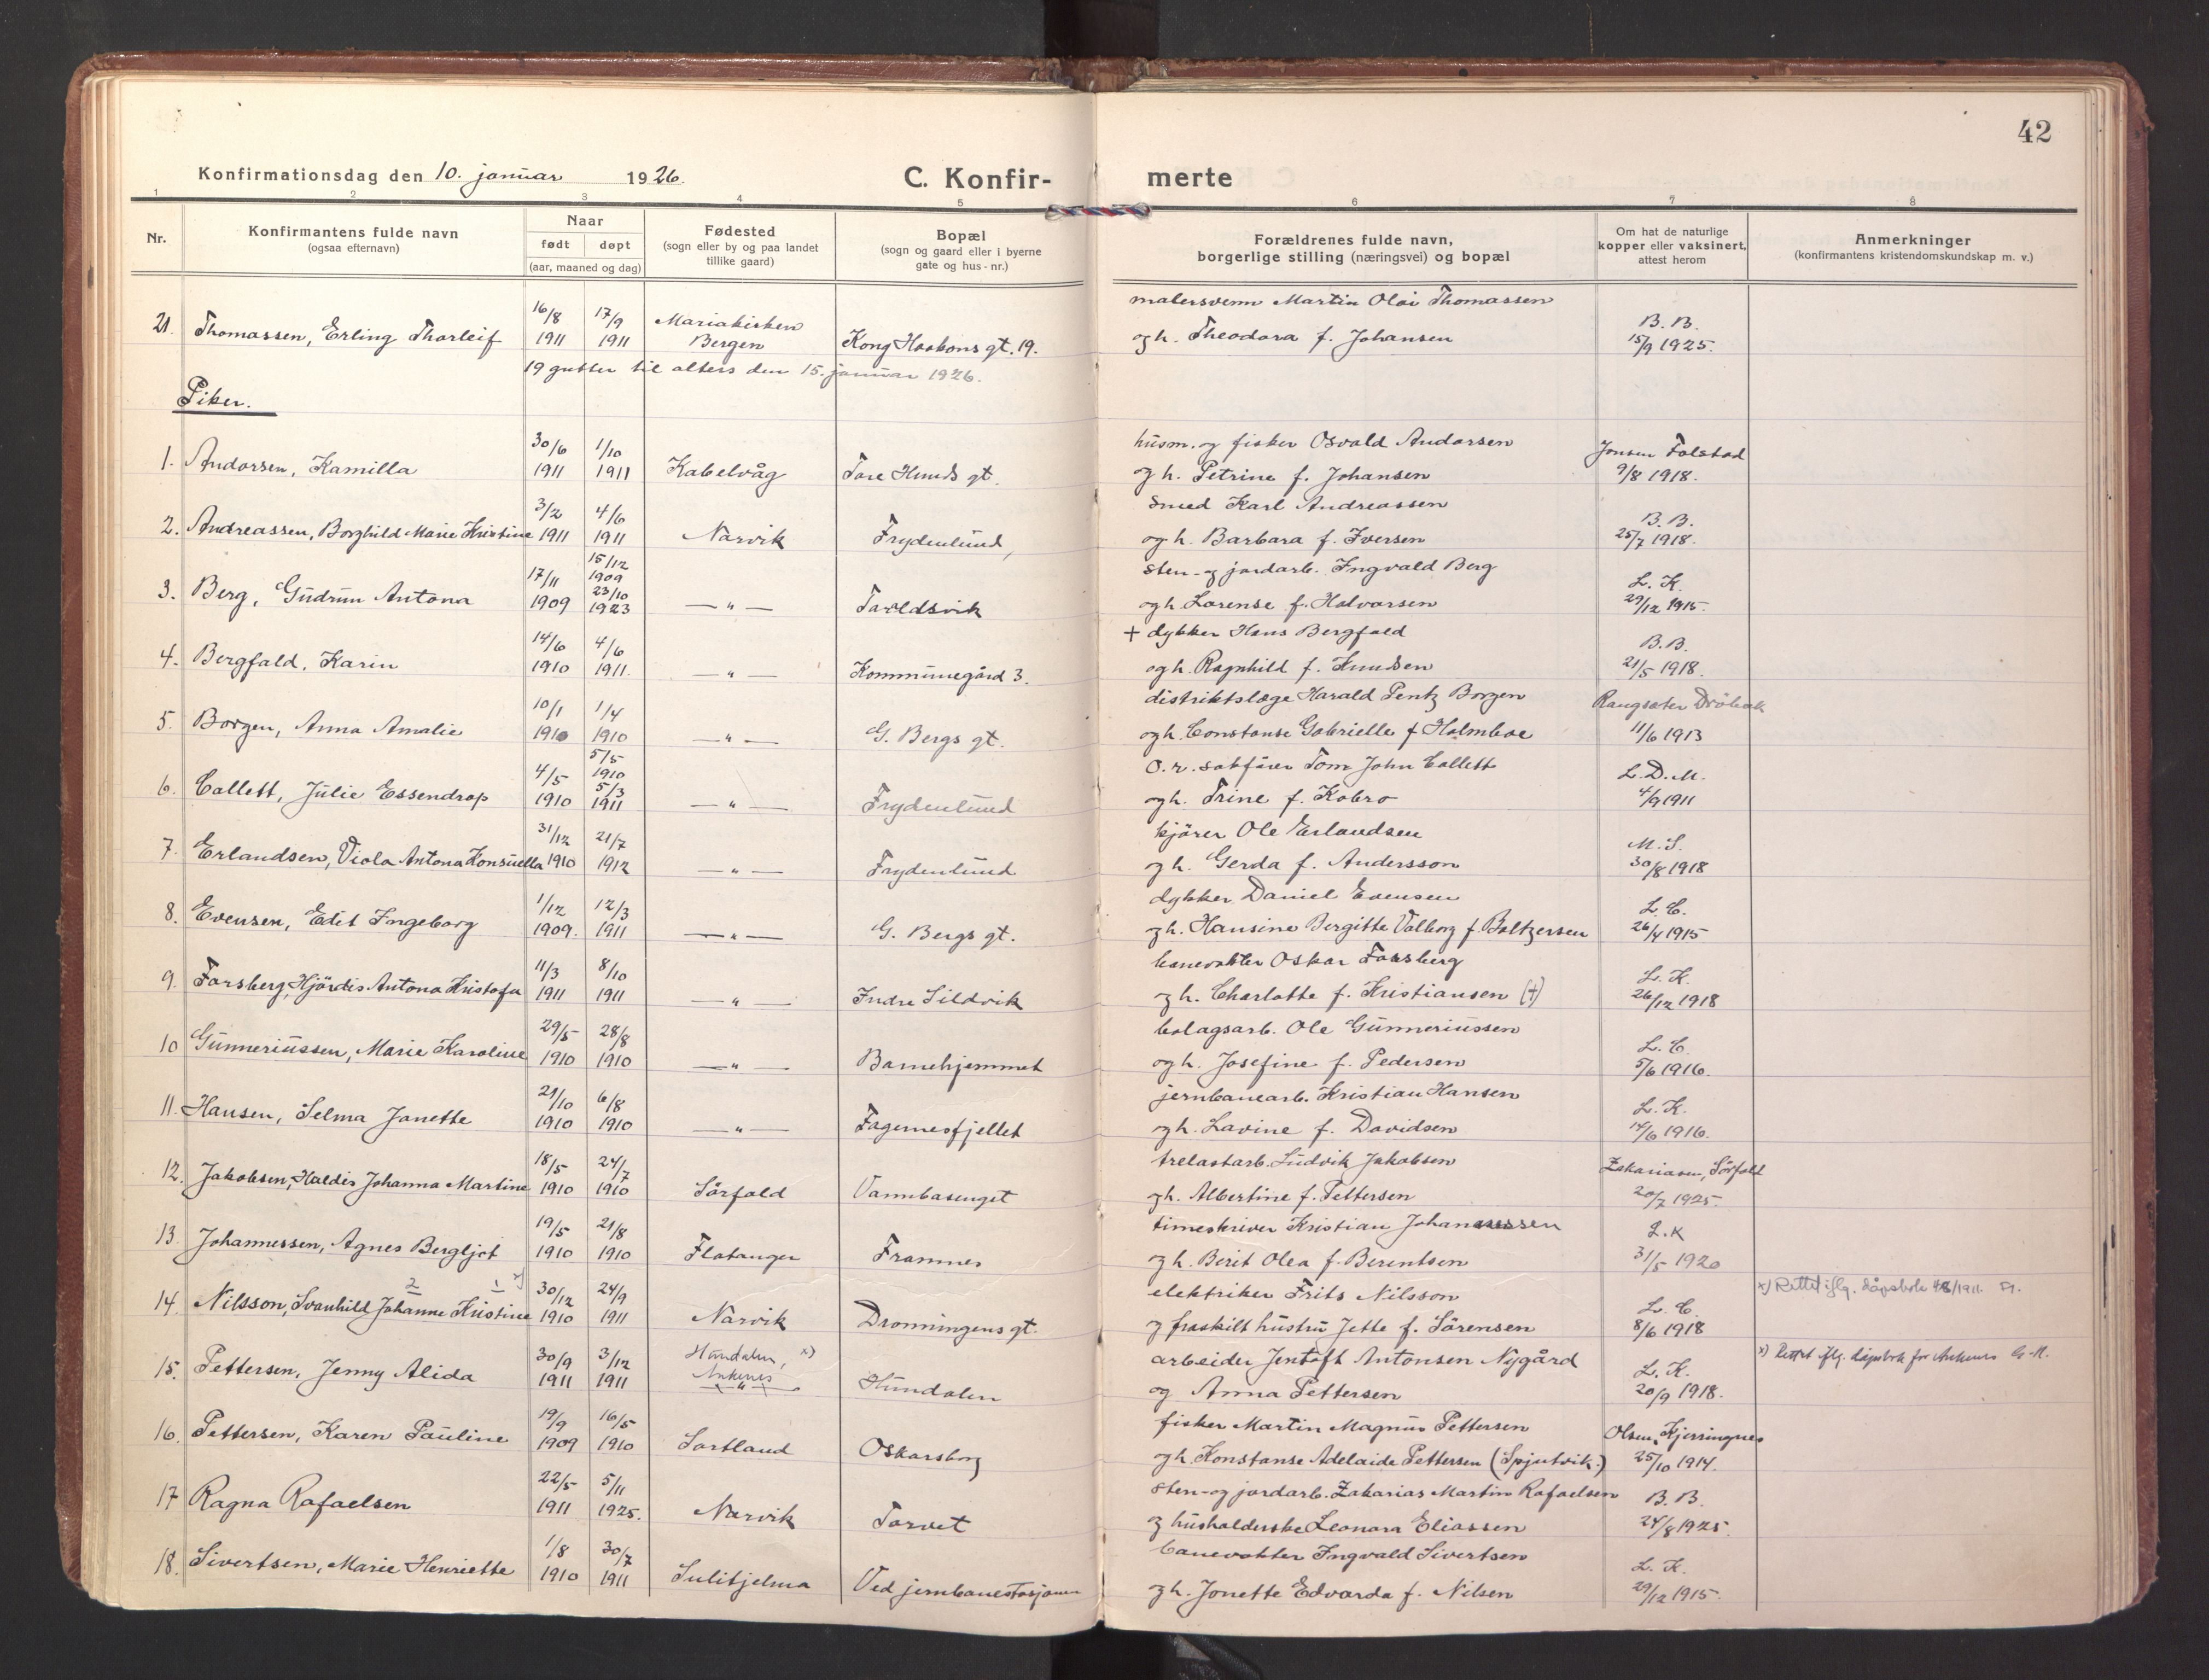 42
Konfirmationsdag den 10. januar 1926.
C. Konfir-
merte
1 2 3 4 5 6 7 8
Nr.
Konfirmantens fulde navn
(ogsaa efternavn)
Naar
født døpt
(aar, maaned og dag)
Fødested
(sogn eller by og paa landet
tillike gaard)
Bopæl
(sogn og gaard eller i byerne
gate og hus-nr.)
Forældrenes fulde navn,
borgerlige stilling (næringsvei) og bopæl
Om hat de naturlige
kopper eller vaksinert,
attest herom
Anmerkninger
(konfirmantens kristendomskundskap m. v.)
16/8 17/9 Mariakirken malersvenn Martin Olai Thomassen B. B.
21. Thomassen, Erling Thorleif 1911 1911 Bergen Kong Haakons gt. 19. og h. Theodora f. Johansen 15/9 1925.
19 gutter til alters den 15. januar 1926.
Piker.
30/6 1/10 husm. og fisker Osvald Andorsen Jonsen Folstad
1. Andorsen, Kamilla 1911 1911 Kabelvåg Tore Hunds gt. og h. Petrine f. Johansen 9/8 1918.
3/2 4/6 Smed Karl Andreassen B. B.
2. Andreassen, Borghild Marie Kristine 1911 1911 Narvik Frydenlund, og h. Barbara f. Iversen 25/7 1918.
15/12
17/11 1909 sten- og jordarb. Ingvald Berg L. K.
23/10
3. Berg, Gudrun Antona 1909 1923 — " — Taraldsvik og h. Lorense f. Halvorsen 29/12 1915.
14/6 4/6 + dykker Hans Bergfald B. B.
4. Bergfald, Karin 1910 1911. — " — Kommunegård 3. og h. Ragnhild f. Knudsen 21/5 1918.
10/1 1/4 distriktslæge Harald Pentz Borgen Drøbak
5. Borgen, Anna Amalie 1910 1910 — " — G. Bergs gt. og h. Constanse Gabrielle f. Holmboe 11/6 1913
5/5
4/5 1910 O.r. sakfører Tom John Collett L. D. M.
5/3
6. Collett, Julie Essendrop 1910 1911 — " — Frydenlund og h. Trine f. Kobro 4/9 1911
31/12 21/7 kjører Ole Erlandsen M. S.
7. Erlandsen, Viola Antona Konsuella 1910 1912 — " — Frydenlund og h. Gerda f. Andersson 30/8 1918
1/12 12/3 dykker Daniel Evensen L. C.
8. Evensen, Edit Ingeborg 1909. 1911 — " — G. Bergs gt. og h. Hansine Bergitte Valborg f. Baltzersen 26/4 1915
11/3 8/10 banevokter Oskar Forsberg L. K.
9. Forsberg, Hjördis Antona Kristofa 1911 1911 — " — Indre Sildvik og h. Charlotte f. Kristiansen (+) 26/12 1918
29/5 28/8 bolagsarb. Ole Gunneriussen L. C.
10 Gunneriussen, Marie Karoline 1910 1910 — " — Barnehjemmet og h. Josefine f. Pedersen 5/6 1916.
21/10 6/8 jernbanearb. Kristian Hansen L. K.
11. Hansen, Selma Janette 1910 1910 — " — Fagernesfjellet og h. Lavine f. Davidsen 14/6 1916.
18/5 24/7 trelastarb. Ludvik Jakobsen Zakariasen, Sörfold
12. Jakobsen, Haldis Johanna Martine 1910 1910 Sörfold Vannbasenget og h. Albertine f. Pettersen 20/7 1925.
19/5 21/8 timeskriver Kristian Johannessen L. K
13. Johannessen, Agnes Bergljot 1910 1910 Flatanger Framnes og h. Berit Olea f. Berentsen 31/5 1920
2 1 x) 30/12 24/9 elektriker Frits Nilsson L. C. x) Rettet iflg. dåpsbok 48/1911.
14. Nilsson, Svanhild Johanne Kristine 1910 1911 Narvik Dronningens gt. og fraskilt hustru Jette f. Sörensen 8/6 1918
30/9 3/12 Hundalen, x) arbeider Jentoft Antonsen Nygård L. K. x) Rettet iflg. dåpsbok for Ankenes
15. Pettersen, Jenny Alida 1911 1911 Ankenes — " — Hundalen og Anna Pettersen 20/9 1918.
19/9 16/5 fisker Martin Magnus Pettersen Olsen, Kjerringnes
16. Pettersen, Karen Pauline 1909 1910 Sortland Oskarsborg og h. Konstanse Adelaide Pettersen (Spjutvik.) 25/10 1914.
22/5 5/11 sten- og jordarb. Zakarias Martin Rafaelsen B. B.
17 Ragna Rafaelsen 1911 1925. Narvik Torvet og husholderske Leonora Eliassen 24/8 1925.
1/8 30/7 banevokter Ingvald Sivertsen L. K.
18. Sivertsen, Marie Henriette 1910 1911 Sulitjelma Ved jernbanestasjonen og h. Jonette Edvarda f. Nilsen 29/12 1915.